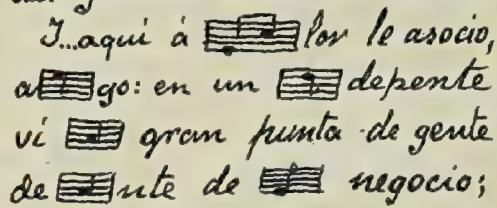 I...aqui á lor le asocio,
a go: en un depente
ví gran punta de gente
de nte de negocio;